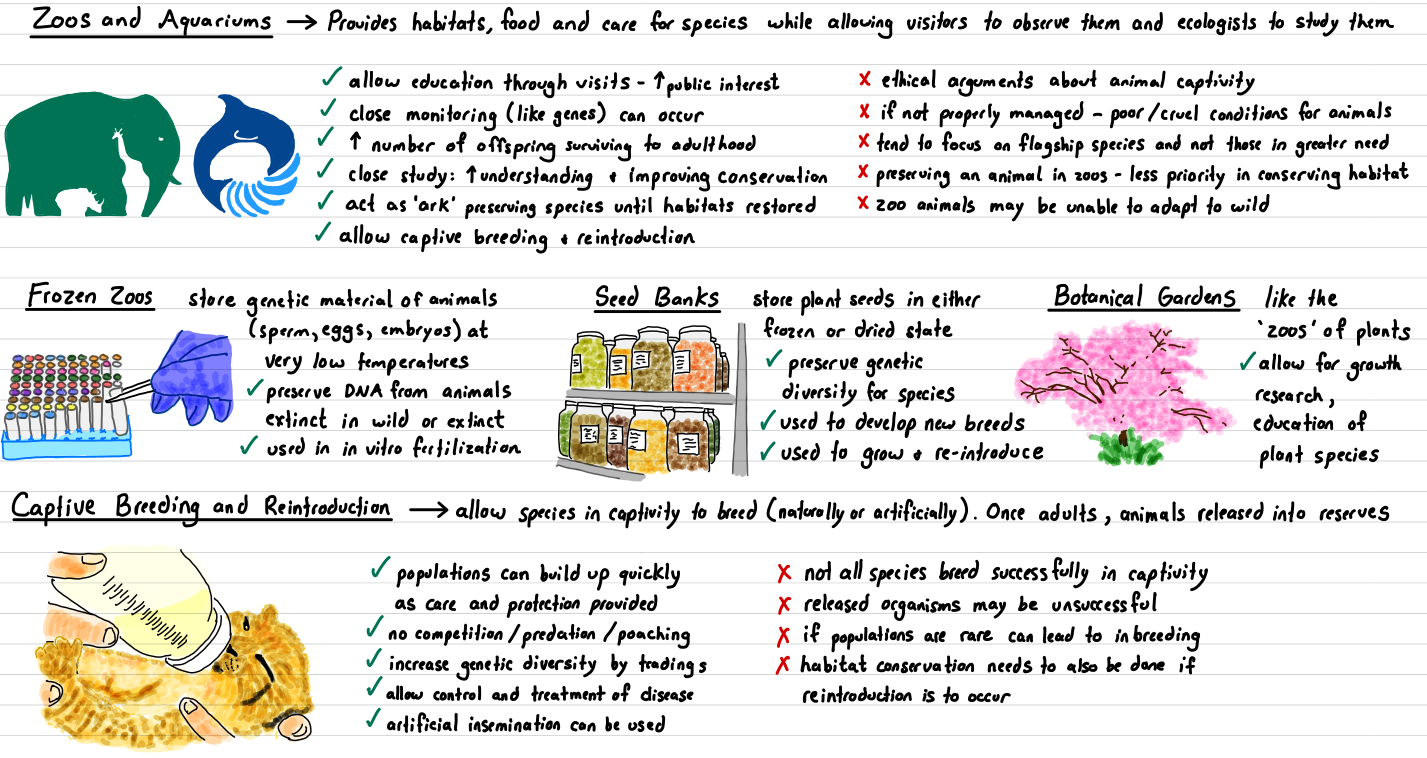 Zoos and Aquariums → Provides habitats, food and care for species while allowing visitors to observe them and ecologists to study them
✓ allow education through visits - ↑ public interest
✓ close monitoring (like genes) can occur
✓ ↑ number of offspring surviving to adulthood
✓ close study: ↑ understanding + improving conservation
✓ act as 'ark' preserving species until habitats restored
✓ allow captive breeding + reintroduction
✗ ethical arguments about animal captivity
✗ if not properly managed - poor/cruel conditions for animals
✗ tend to focus on flagship species and not those in greater need
✗ preserving an animal in zoos - less priority in conserving habitat
✗ zoo animals may be unable to adapt to wild
Frozen Zoos store genetic material of animals
(sperm, eggs, embryos) at
very low temperatures
✓ preserve DNA from animals
extinct in wild or extinct
✓ used in in vitro fertilization
Seed Banks store plant seeds in either
frozen or dried state
✓ preserve genetic
diversity for species
✓ used to develop new breeds
✓ used to grow + re-introduce
Botanical Gardens like the
'zoos' of plants
✓ allow for growth
research,
education of
plant species
Captive Breeding and Reintroduction → allow species in captivity to breed (naturally or artificially). Once adults, animals released into reserves
✓ populations can build up quickly
as care and protection provided
✓ no competition/predation/poaching
✓ increase genetic diversity by tradings
✓ allow control and treatment of disease
✓ artificial insemination can be used
✗ not all species breed successfully in captivity
✗ released organisms may be unsuccessful
✗ if populations are rare can lead to inbreeding
✗ habitat conservation needs to also be done if
reintroduction is to occur